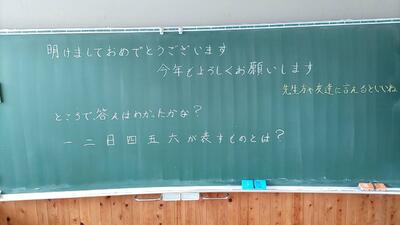 明けましておめでとうございます
今年もよろしくお願いします
先生方や友達に言えるといいね
ところで、答えはわかったかな?
一二日四五六が表すものとは?